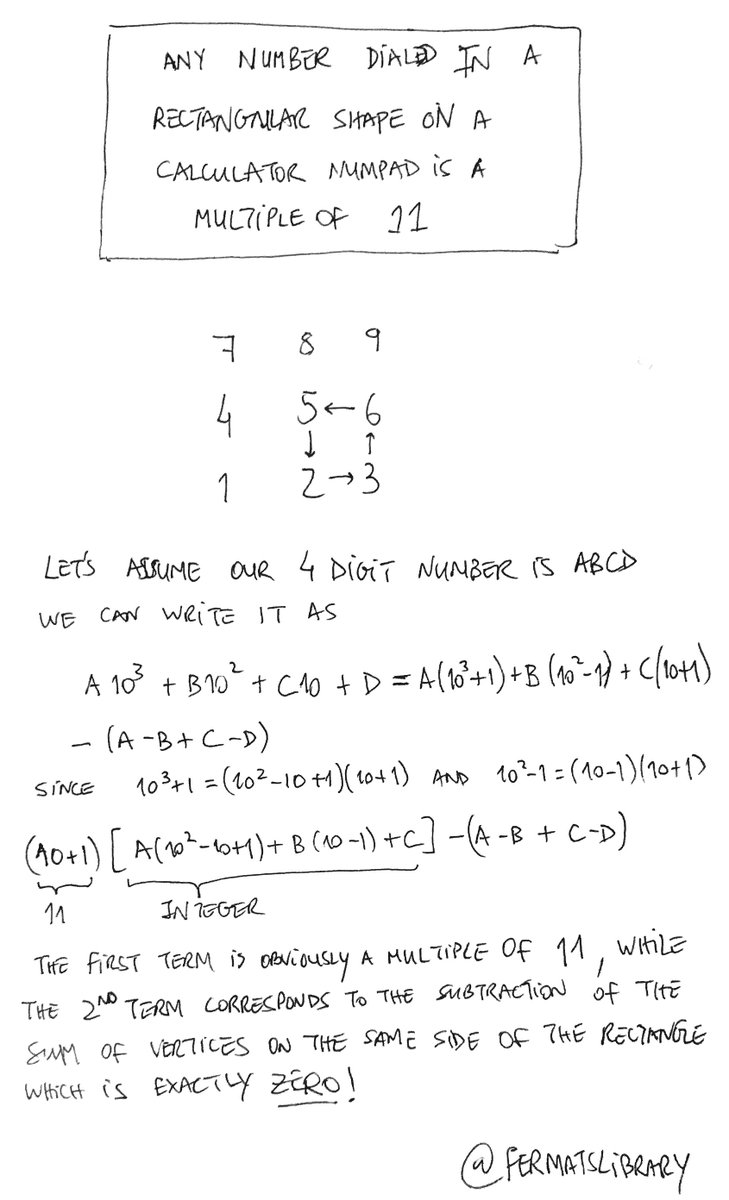 ANY NUMBER DIALED IN A
RECTANGULAR SHAPE ON A
CALCULATOR NUMPAD IS A
MULTIPLE OF 11
7 8 9
4 5 ← 6
↓ ↑
1 2 → 3
LET'S ASSUME OUR 4 DIGIT NUMBER IS ABCD
WE CAN WRITE IT AS
A 10³ + B10² + C10 + D = A(10³+1) + B(10²-1) + C(10+1)
- (A - B + C - D)
SINCE 10³+1 = (10²-10+1)(10+1) AND 10²-1 = (10-1)(10+1)
(10+1) [A(10²-10+1) + B(10-1) + C] - (A - B + C - D)
11 INTEGER
THE FIRST TERM IS OBVIOUSLY A MULTIPLE OF 11, WHILE
THE 2ND TERM CORRESPONDS TO THE SUBTRACTION OF THE
SUM OF VERTICES ON THE SAME SIDE OF THE RECTANGLE
WHICH IS EXACTLY ZERO!
@FERMATSLIBRARY